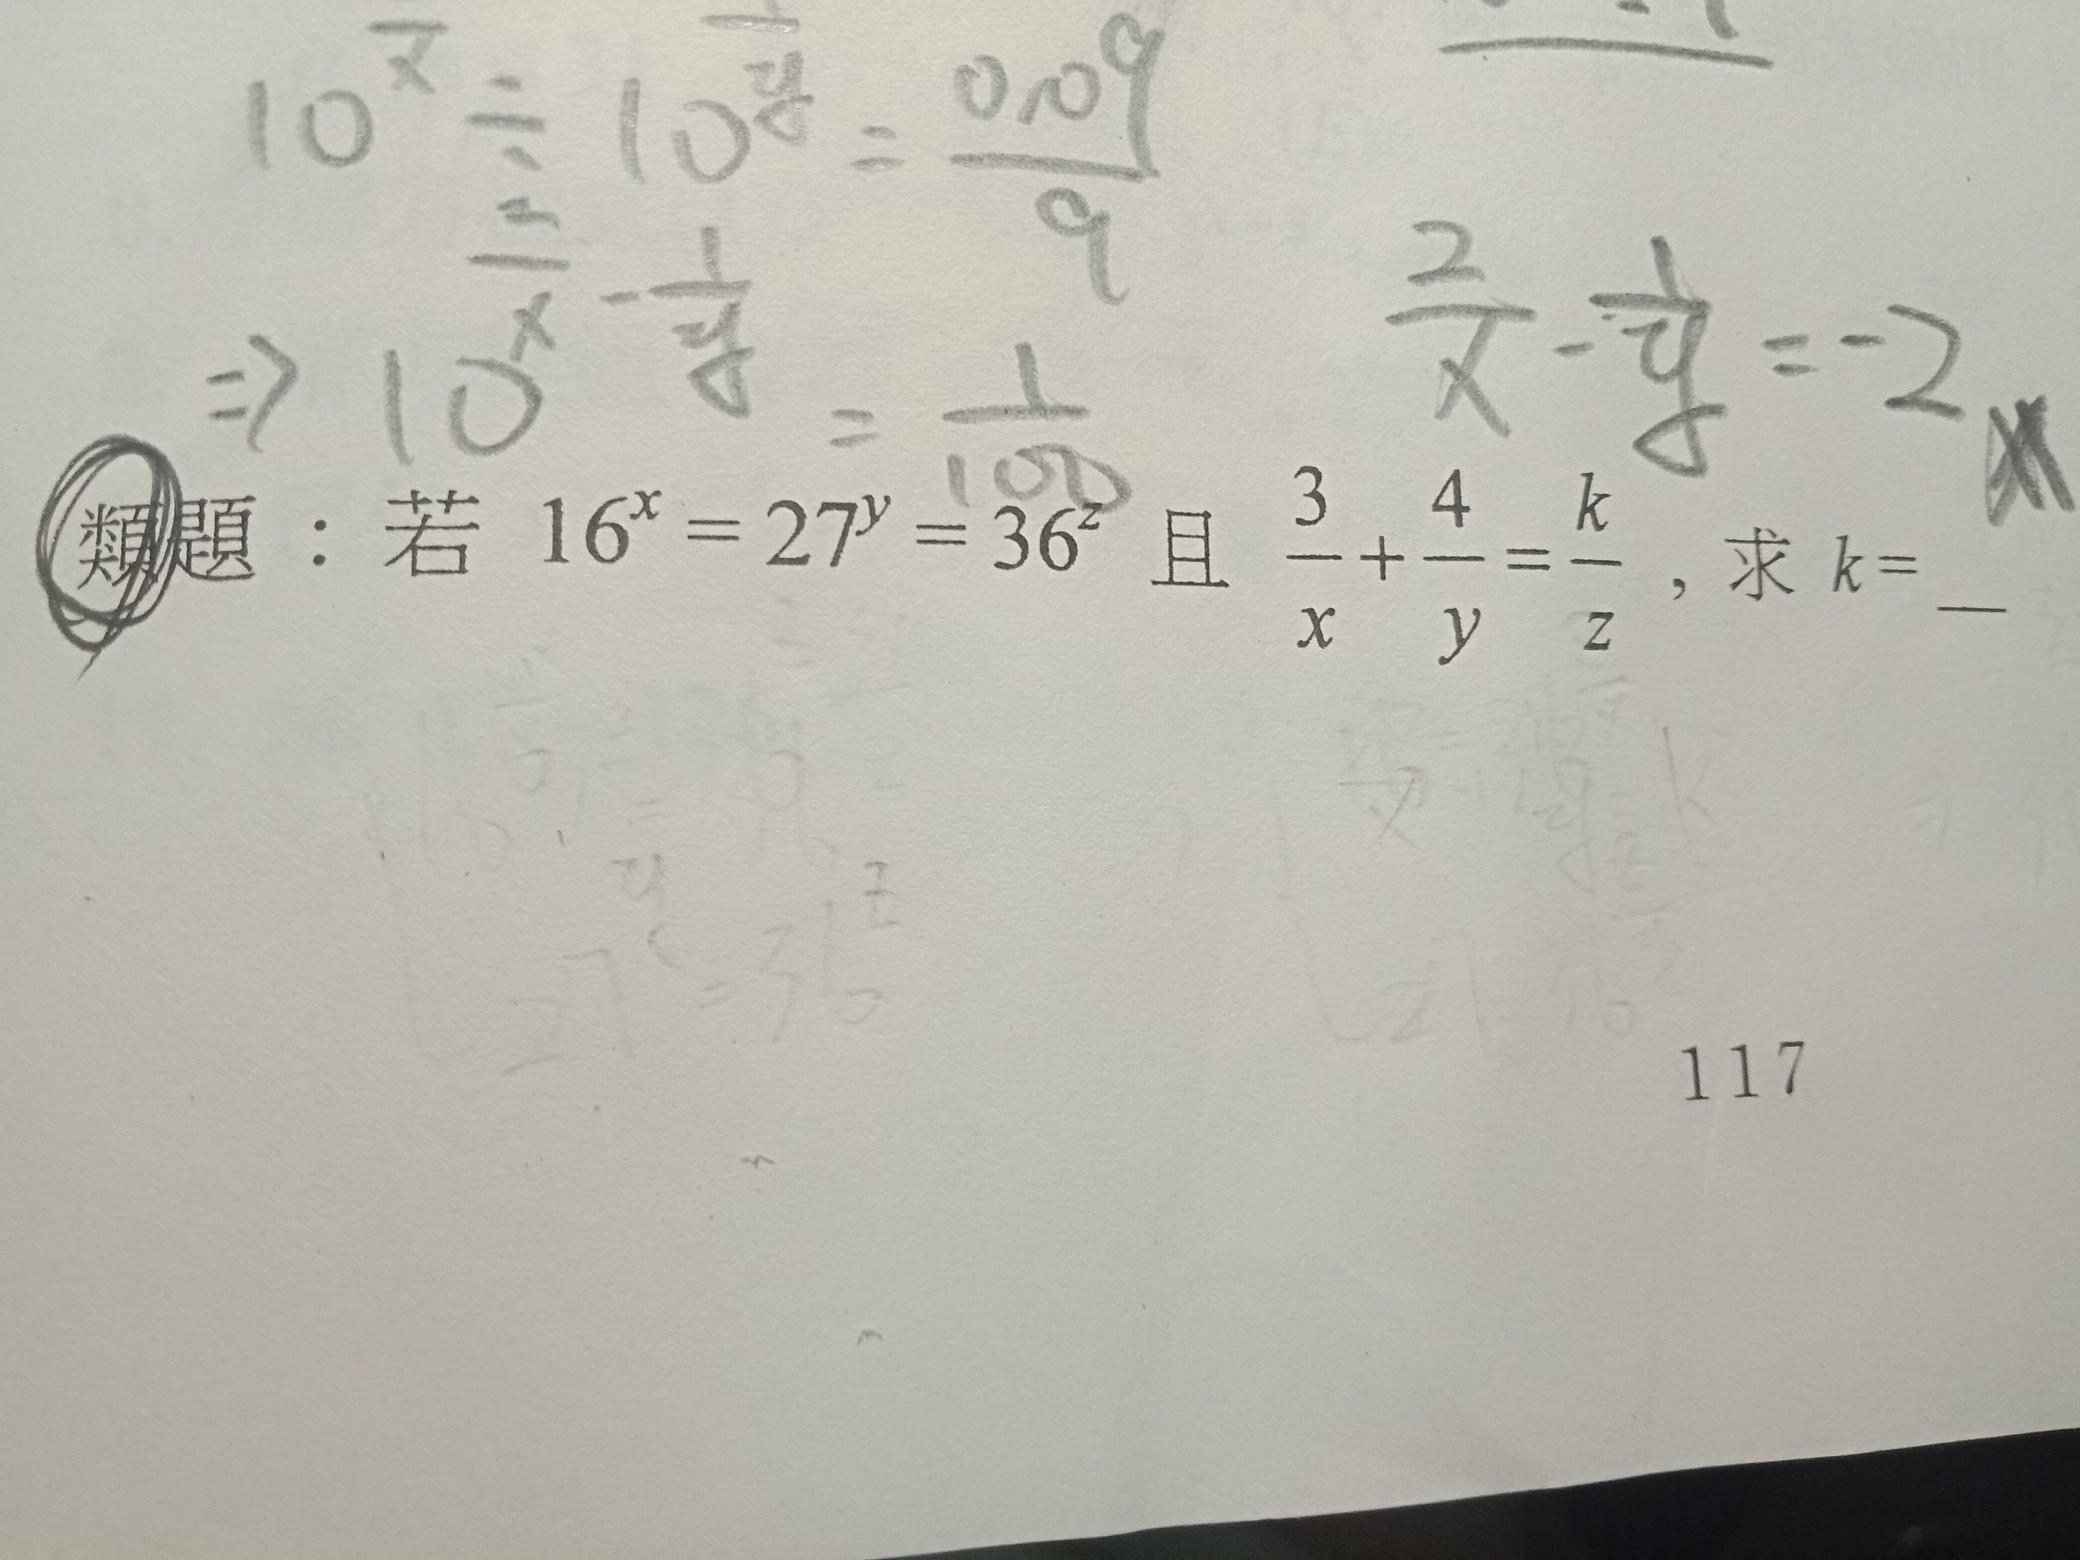 10^{\frac{2}{x}} ÷ 10^{\frac{1}{y}} = \frac{0.09}{9}
⇒ 10^{\frac{2}{x} - \frac{1}{y}} = \frac{1}{100}
\frac{2}{x} - \frac{1}{y} = -2
類題：若 16^x = 27^y = 36^z 且 \frac{3}{x} + \frac{4}{y} = \frac{k}{z}，求 k = __
27^y = 36^z
117